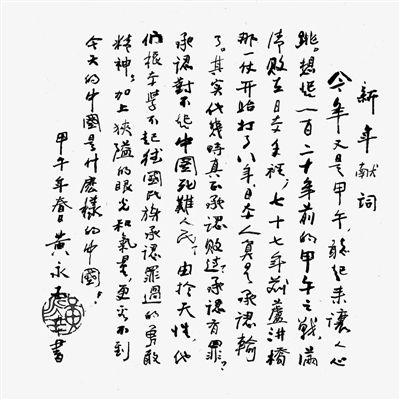 新年献詞
今年又是甲午,說起来讓人心
跳。想從一百二十年前的甲午之戰,滿
清敗在日本手裡,七十七年前蘆溝橋
那一仗开始打了八年,日本人算是承認輸
了。其實他幾時真正承認敗過?承認有罪?
承認對不起中國死難人民?由於天性,他
們根本學不起德國民族承認罪過的勇敢
精神。加上狹隘的眼光和氣量,更看不到
今天的中國是什麽樣的中國!
甲午年春日黄永玉書